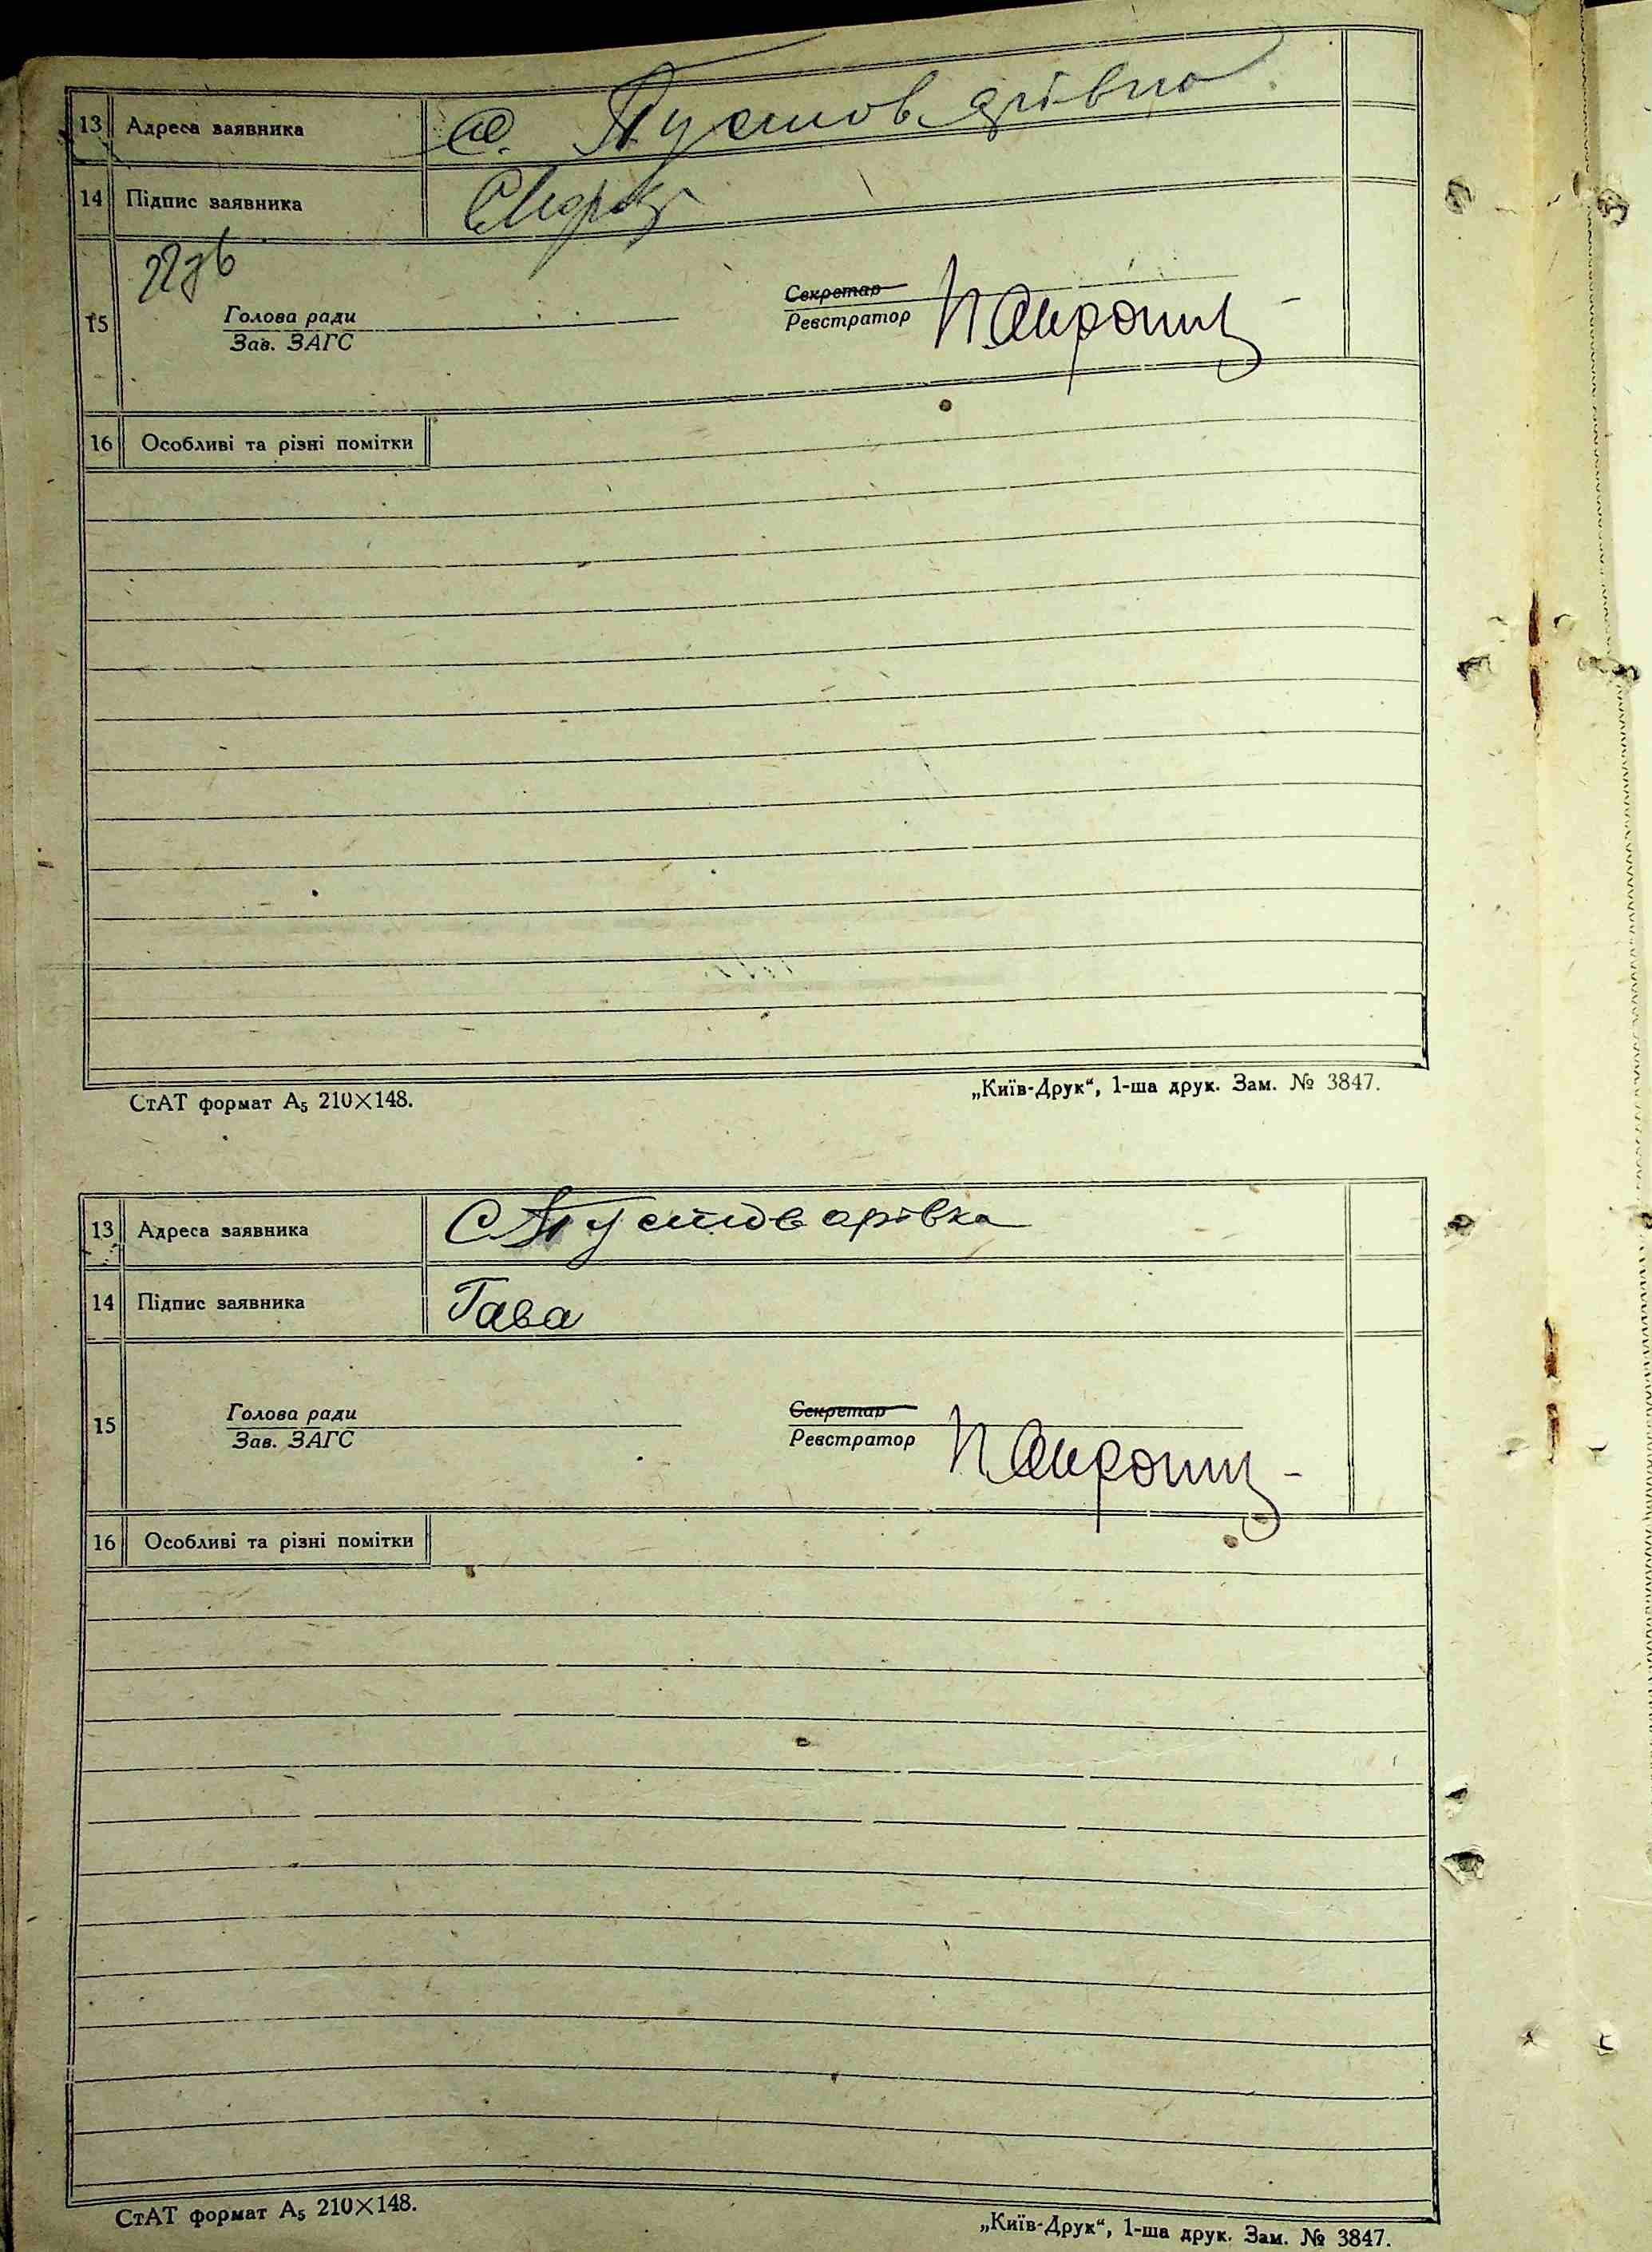 13 Адреса заявника с. Пустов
14 Підпис заявника
15 Голова ради Секретар
Зав. ЗАГС Реєстратор
16 Особливі та різні помітки
СтАТ формат А₅ 210×148. „Київ-Друк“, 1-ша друк. Зам. № 3847.
13 Адреса заявника С Пустоварівка
14 Підпис заявника Гава
15 Голова ради Секретар
Зав. ЗАГС Реєстратор
16 Особливі та різні помітки
СтАТ формат А₅ 210×148. „Київ-Друк“, 1-ша друк. Зам. № 3847.